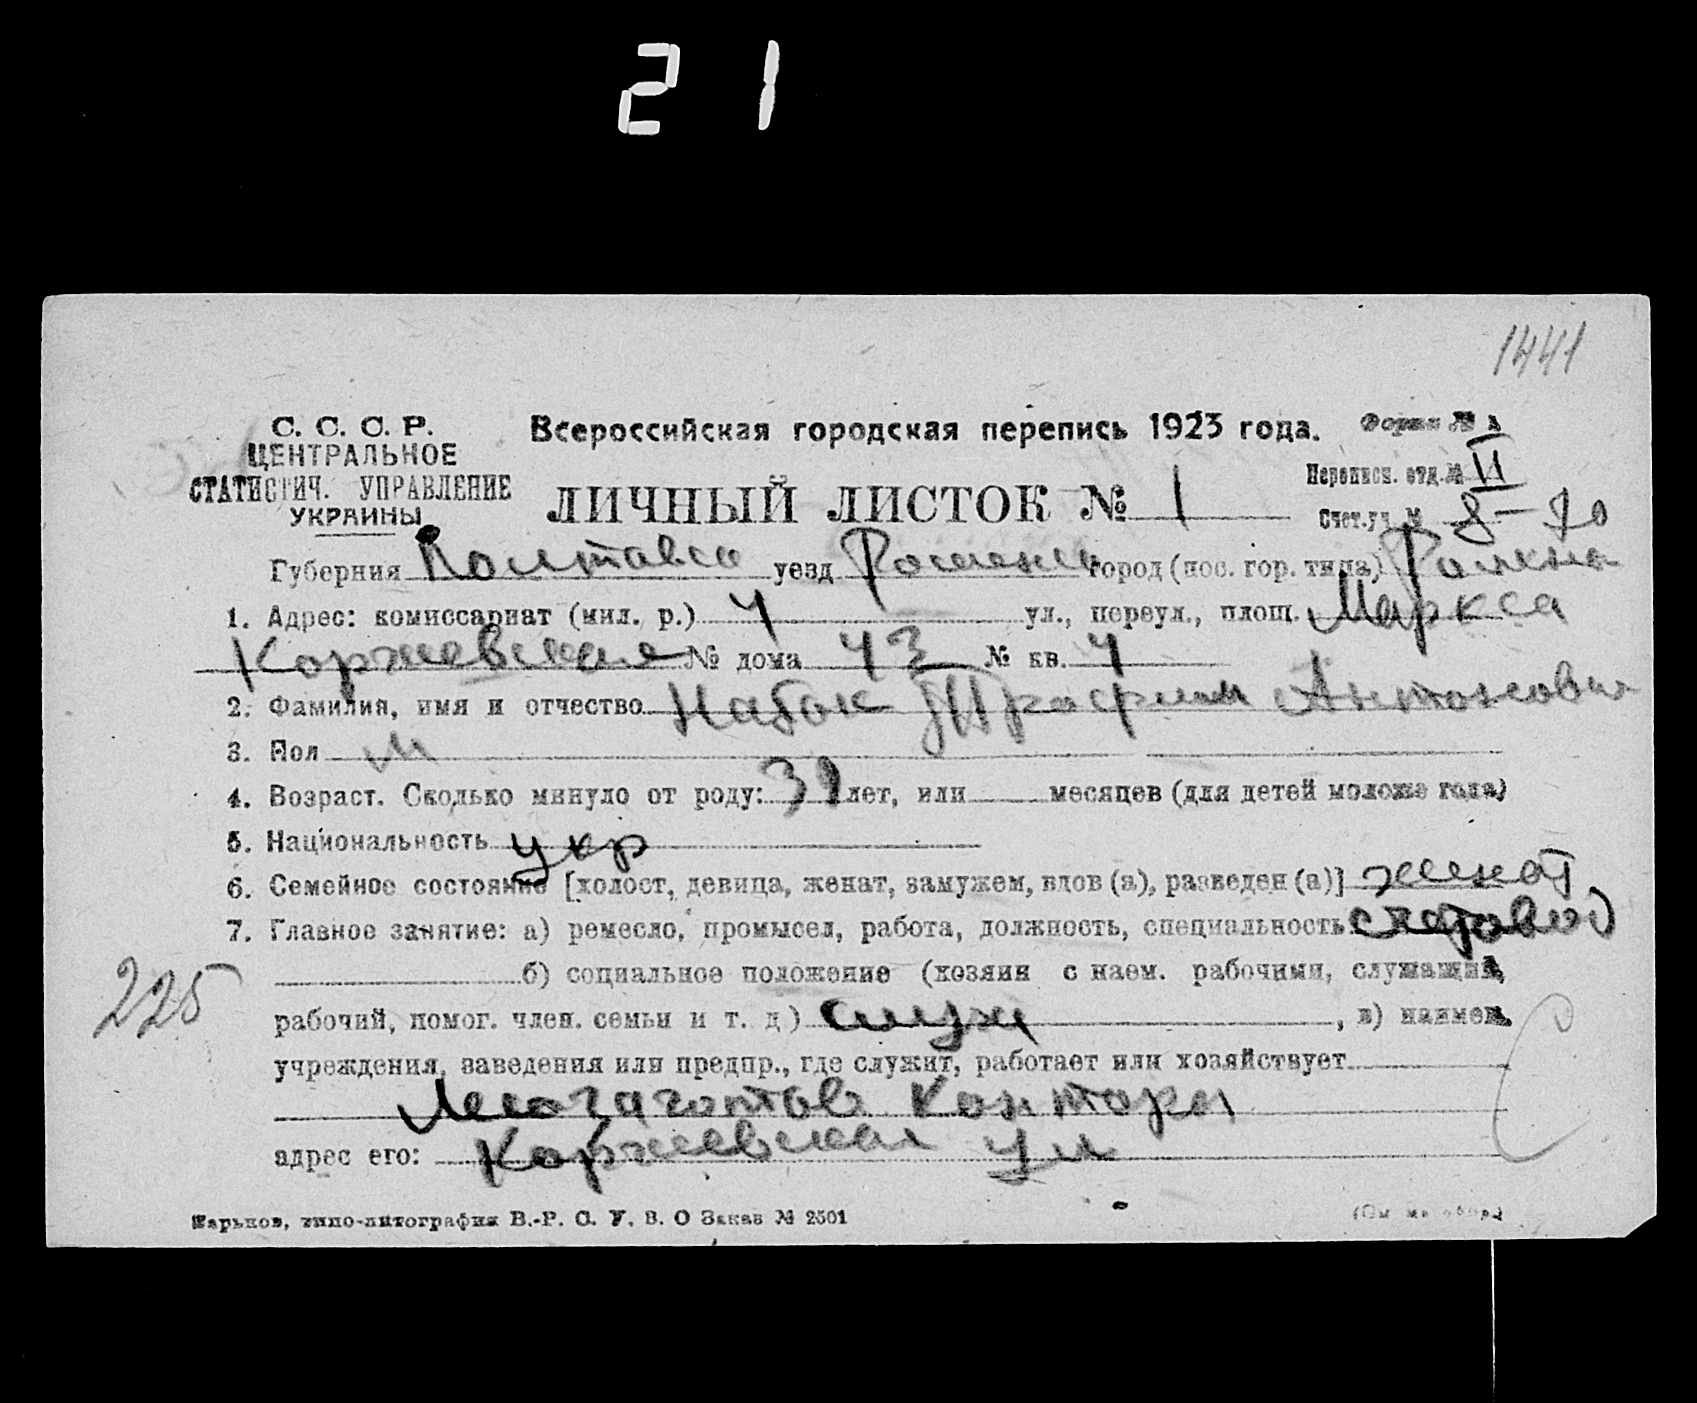 21
1441
С. С. С. Р.
ЦЕНТРАЛЬНОЕ
СТАТИСТИЧ. УПРАВЛЕНИЕ
УКРАИНЫ
Всероссийская городская перепись 1923 года.
Форма № А
Переписн. отд. № VI
ЛИЧНЫЙ ЛИСТОК № 1
Счет. уч. № 8-70
Губерния Полтавск уезд Роменск город (пос. гор. типа) Ромены
1. Адрес: комиссариат (мил. р.) 4 ул., переул., площ. Маркса
Коржевская № дома 43 № кв. 4
2. Фамилия, имя и отчество Набок Трофим Антонович
3. Пол м
4. Возраст. Сколько минуло от роду: 39 лет, или месяцев (для детей моложе года)
5. Национальность укр
6. Семейное состояние [холост, девица, женат, замужем, вдов (а), разведен (а)] женат
7. Главное занятие: а) ремесло, промысел, работа, должность, специальность
б) социальное положение (хозяин с наем. рабочими, служащий,
225
рабочий, помог. член. семьи и т. д) служ , в) наимен.
учреждения, заведения или предпр., где служит, работает или хозяйствует
Конторы
адрес его: Коржевская ул
Харьков, типо-литография В.-Р. С. У. В. О Заказ № 2501